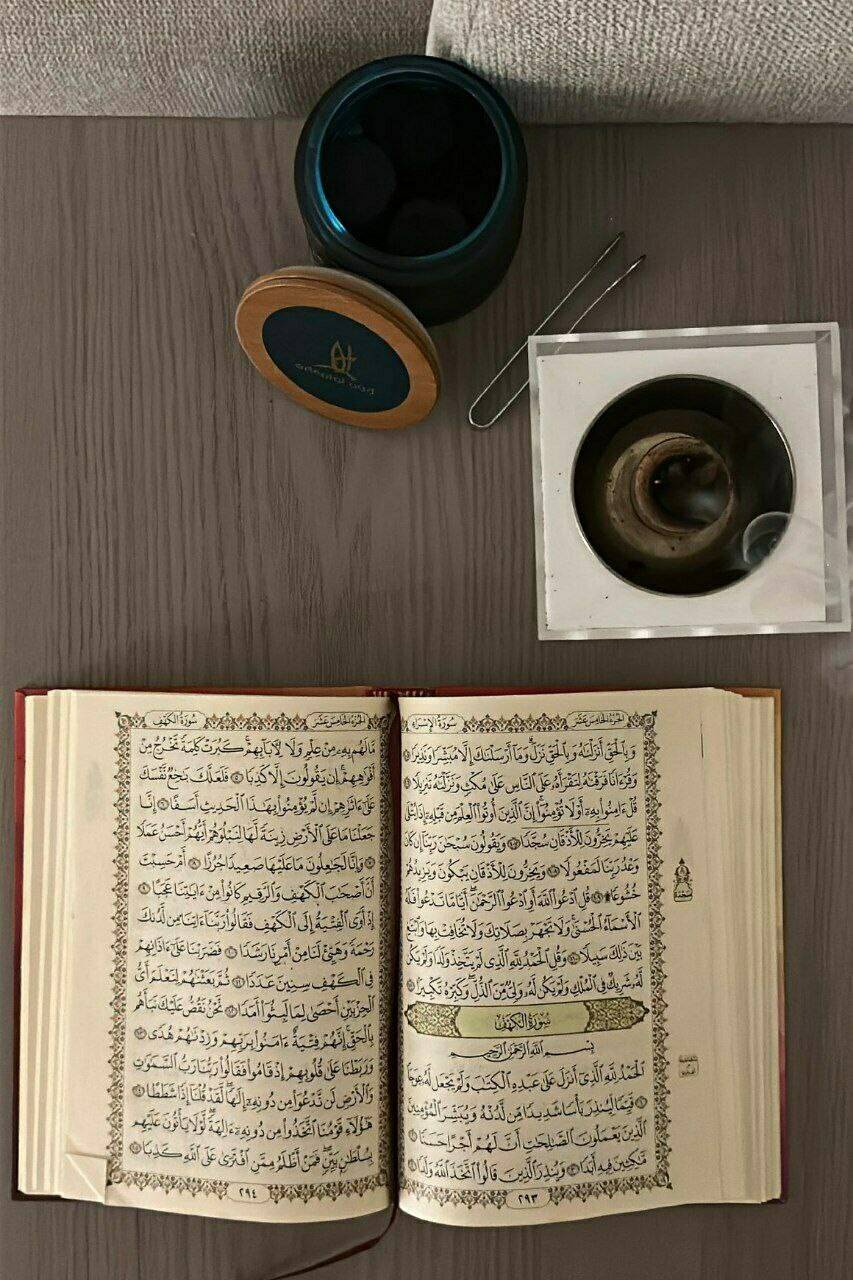 الجزء الخامس عشر
سورة الإسراء
وَبِالْحَقِّ أَنزَلْنَٰهُ وَبِالْحَقِّ نَزَلَ وَمَا أَرْسَلْنَٰكَ إِلَّا مُبَشِّرًا وَنَذِيرًا ١٠٥
وَقُرْءَانًا فَرَقْنَٰهُ لِتَقْرَأَهُ عَلَى النَّاسِ عَلَىٰ مُكْثٍ وَنَزَّلْنَٰهُ تَنزِيلًا ١٠٦
قُلْ ءَامِنُوا بِهِ أَوْ لَا تُؤْمِنُوا إِنَّ الَّذِينَ أُوتُوا الْعِلْمَ مِن قَبْلِهِ إِذَا يُتْلَىٰ
عَلَيْهِمْ يَخِرُّونَ لِلْأَذْقَانِ سُجَّدًا ١٠٧ وَيَقُولُونَ سُبْحَٰنَ رَبِّنَا إِن كَانَ
وَعْدُ رَبِّنَا لَمَفْعُولًا ١٠٨ وَيَخِرُّونَ لِلْأَذْقَانِ يَبْكُونَ وَيَزِيدُهُمْ
خُشُوعًا ۩ ١٠٩ قُلِ ادْعُوا اللَّهَ أَوِ ادْعُوا الرَّحْمَٰنَ أَيًّا مَّا تَدْعُوا فَلَهُ
الْأَسْمَاءُ الْحُسْنَىٰ وَلَا تَجْهَرْ بِصَلَاتِكَ وَلَا تُخَافِتْ بِهَا وَابْتَغِ
بَيْنَ ذَٰلِكَ سَبِيلًا ١١٠ وَقُلِ الْحَمْدُ لِلَّهِ الَّذِي لَمْ يَتَّخِذْ وَلَدًا وَلَمْ يَكُن
لَّهُ شَرِيكٌ فِي الْمُلْكِ وَلَمْ يَكُن لَّهُ وَلِيٌّ مِّنَ الذُّلِّ وَكَبِّرْهُ تَكْبِيرًا ١١١
سورة الكهف
بِسْمِ اللَّهِ الرَّحْمَٰنِ الرَّحِيمِ
الْحَمْدُ لِلَّهِ الَّذِي أَنزَلَ عَلَىٰ عَبْدِهِ الْكِتَٰبَ وَلَمْ يَجْعَل لَّهُ عِوَجًا ١
قَيِّمًا لِّيُنذِرَ بَأْسًا شَدِيدًا مِّن لَّدُنْهُ وَيُبَشِّرَ الْمُؤْمِنِينَ
الَّذِينَ يَعْمَلُونَ الصَّٰلِحَٰتِ أَنَّ لَهُمْ أَجْرًا حَسَنًا ٢
مَّٰكِثِينَ فِيهِ أَبَدًا ٣ وَيُنذِرَ الَّذِينَ قَالُوا اتَّخَذَ اللَّهُ وَلَدًا ٤
٢٩٣
سجدة
الجزء الخامس عشر
سورة الكهف
مَّا لَهُم بِهِ مِنْ عِلْمٍ وَلَا لِءَابَائِهِمْ كَبُرَتْ كَلِمَةً تَخْرُجُ مِنْ
أَفْوَٰهِهِمْ إِن يَقُولُونَ إِلَّا كَذِبًا ٥ فَلَعَلَّكَ بَٰخِعٌ نَّفْسَكَ
عَلَىٰ ءَاثَٰرِهِمْ إِن لَّمْ يُؤْمِنُوا بِهَٰذَا الْحَدِيثِ أَسَفًا ٦ إِنَّا
جَعَلْنَا مَا عَلَى الْأَرْضِ زِينَةً لَّهَا لِنَبْلُوَهُمْ أَيُّهُمْ أَحْسَنُ عَمَلًا
٧ وَإِنَّا لَجَٰعِلُونَ مَا عَلَيْهَا صَعِيدًا جُرُزًا ٨ أَمْ حَسِبْتَ
أَنَّ أَصْحَٰبَ الْكَهْفِ وَالرَّقِيمِ كَانُوا مِنْ ءَايَٰتِنَا عَجَبًا ٩
إِذْ أَوَى الْفِتْيَةُ إِلَى الْكَهْفِ فَقَالُوا رَبَّنَا ءَاتِنَا مِن لَّدُنكَ
رَحْمَةً وَهَيِّئْ لَنَا مِنْ أَمْرِنَا رَشَدًا ١٠ فَضَرَبْنَا عَلَىٰ ءَاذَانِهِمْ
فِي الْكَهْفِ سِنِينَ عَدَدًا ١١ ثُمَّ بَعَثْنَٰهُمْ لِنَعْلَمَ أَيُّ
الْحِزْبَيْنِ أَحْصَىٰ لِمَا لَبِثُوا أَمَدًا ١٢ نَّحْنُ نَقُصُّ عَلَيْكَ نَبَأَهُم
بِالْحَقِّ إِنَّهُمْ فِتْيَةٌ ءَامَنُوا بِرَبِّهِمْ وَزِدْنَٰهُمْ هُدًى ١٣
وَرَبَطْنَا عَلَىٰ قُلُوبِهِمْ إِذْ قَامُوا فَقَالُوا رَبُّنَا رَبُّ السَّمَٰوَٰتِ
وَالْأَرْضِ لَن نَّدْعُوَا مِن دُونِهِ إِلَٰهًا لَّقَدْ قُلْنَا إِذًا شَطَطًا ١٤
هَٰؤُلَاءِ قَوْمُنَا اتَّخَذُوا مِن دُونِهِ ءَالِهَةً لَّوْلَا يَأْتُونَ عَلَيْهِم
بِسُلْطَٰنٍ بَيِّنٍ فَمَنْ أَظْلَمُ مِمَّنِ افْتَرَىٰ عَلَى اللَّهِ كَذِبًا ١٥
٢٩٤